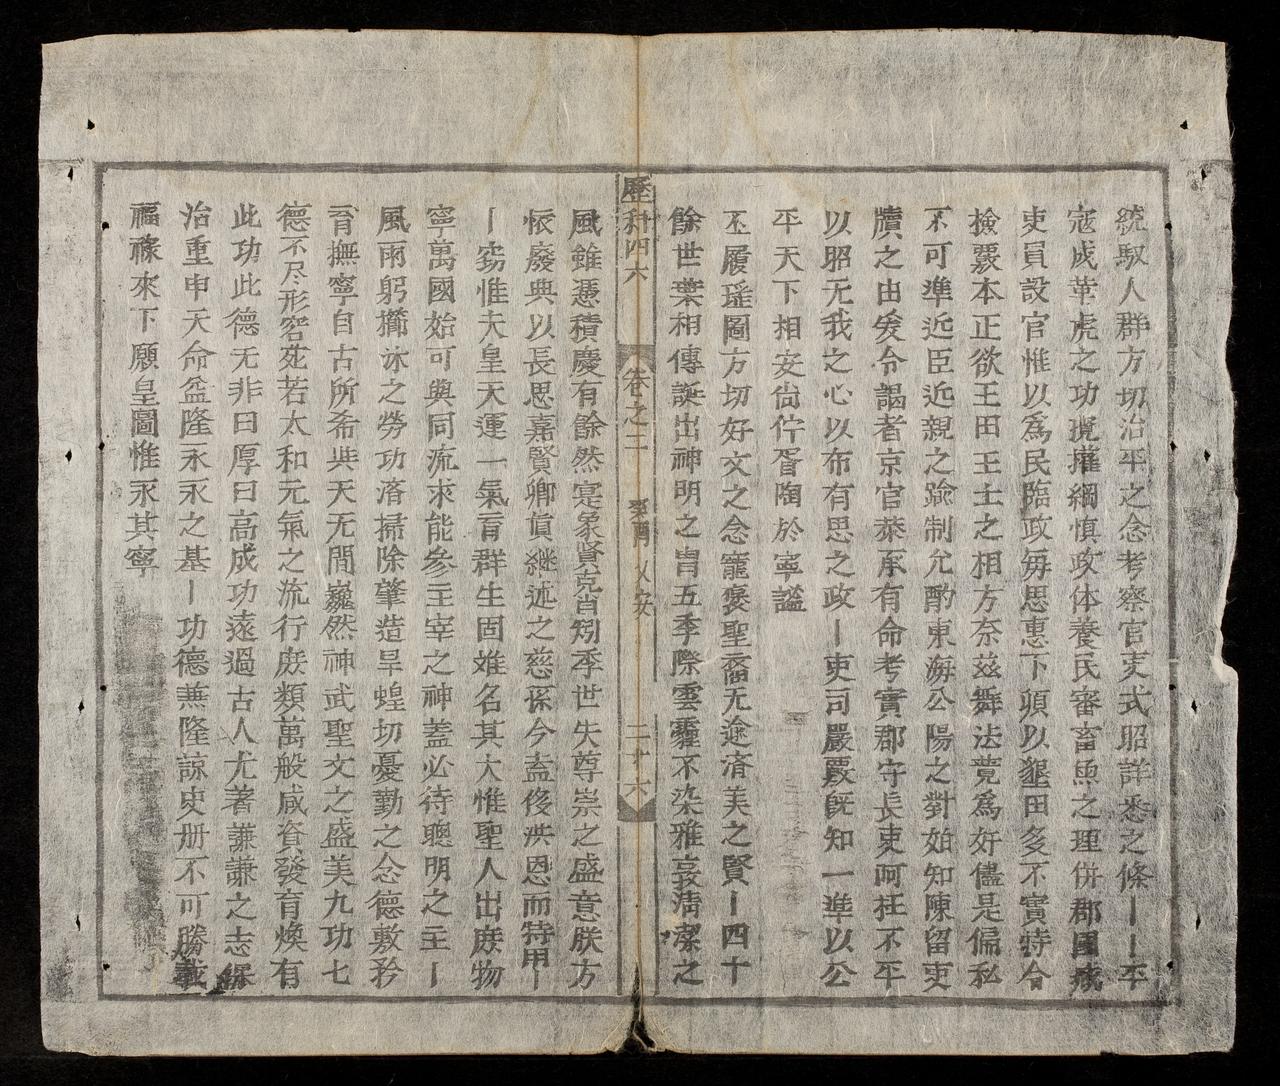 統馭人群方切治平之念考察官吏式昭詳悉之條丨丨平
寇成革虎之功攬權綱慎政体養民審畜魚之理併郡國
吏員設官惟以為民臨政每思惠下頃以墾田多不實特令
撿覈本正欲王田王土之相方奈兹舞法竟為好儘是偏私
不可準近臣近親之踰制允酌東海公陽之對始知陳留吏
牘之由爰令謁者京官恭承有命考實郡守長吏阿枉不平
以昭无我之心以布有思之政丨吏司嚴覈既知一準以公
平天下相安尚佇胥陶於寧謐
丕履瑤圖方切好文之念寵褒聖裔无逾済美之賢丨四十
餘世葉相傳誕出神明之胄五季際雲霾不染雅哀清潔之
歷科四六 卷之二 癸酉 乂安 二十六
風雖憑積慶有餘然寔象賢克肖矧季世失尊崇之盛意朕方
恢廢典以長思嘉賢卿貟継述之慈孫今盍俊洪恩而特用丨
丨窃惟夫皇天運一氣育群生固难名其大惟聖人出庻物
寧萬國始可與同流求能參主宰之神蓋必待聰明之主丨
風雨躬擳沐之勞功洛掃除肇造旱蝗切憂勤之念德敷矜
育撫寧自古所希與天无間巍然神武聖文之盛美九功七
德不尽形容菀若太和元氣之流行庻類萬般咸資發育煥有
此功此德无非曰厚曰高成功遠過古人尤著謙謙之志
治重申天命益隆永永之基丨功德兼隆諒史册不可勝載
福祿來下願皇圖惟永其寧